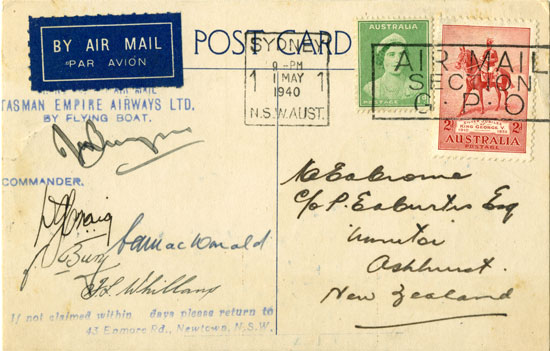 BY AIR MAIL
PAR AVION
POST CARD
SYDNEY
9-PM
1 1 MAY 1
1940
N.S.W. AUST.
AIR MAIL
SECTION
G.P.O
POSTAGE
SILVER JUBILEE
KING GEORGE V
1910 1935
2d 2d
AUSTRALIA
POSTAGE
AIR MAIL
TASMAN EMPIRE AIRWAYS LTD.
BY FLYING BOAT.
COMMANDER.
Craig
Burg
MacDonald
Whillans
c/o P. Eaburtis Esq
Ashhurst.
New Zealand
If not claimed within days please return to
43 Enmore Rd., Newtown, N.S.W.